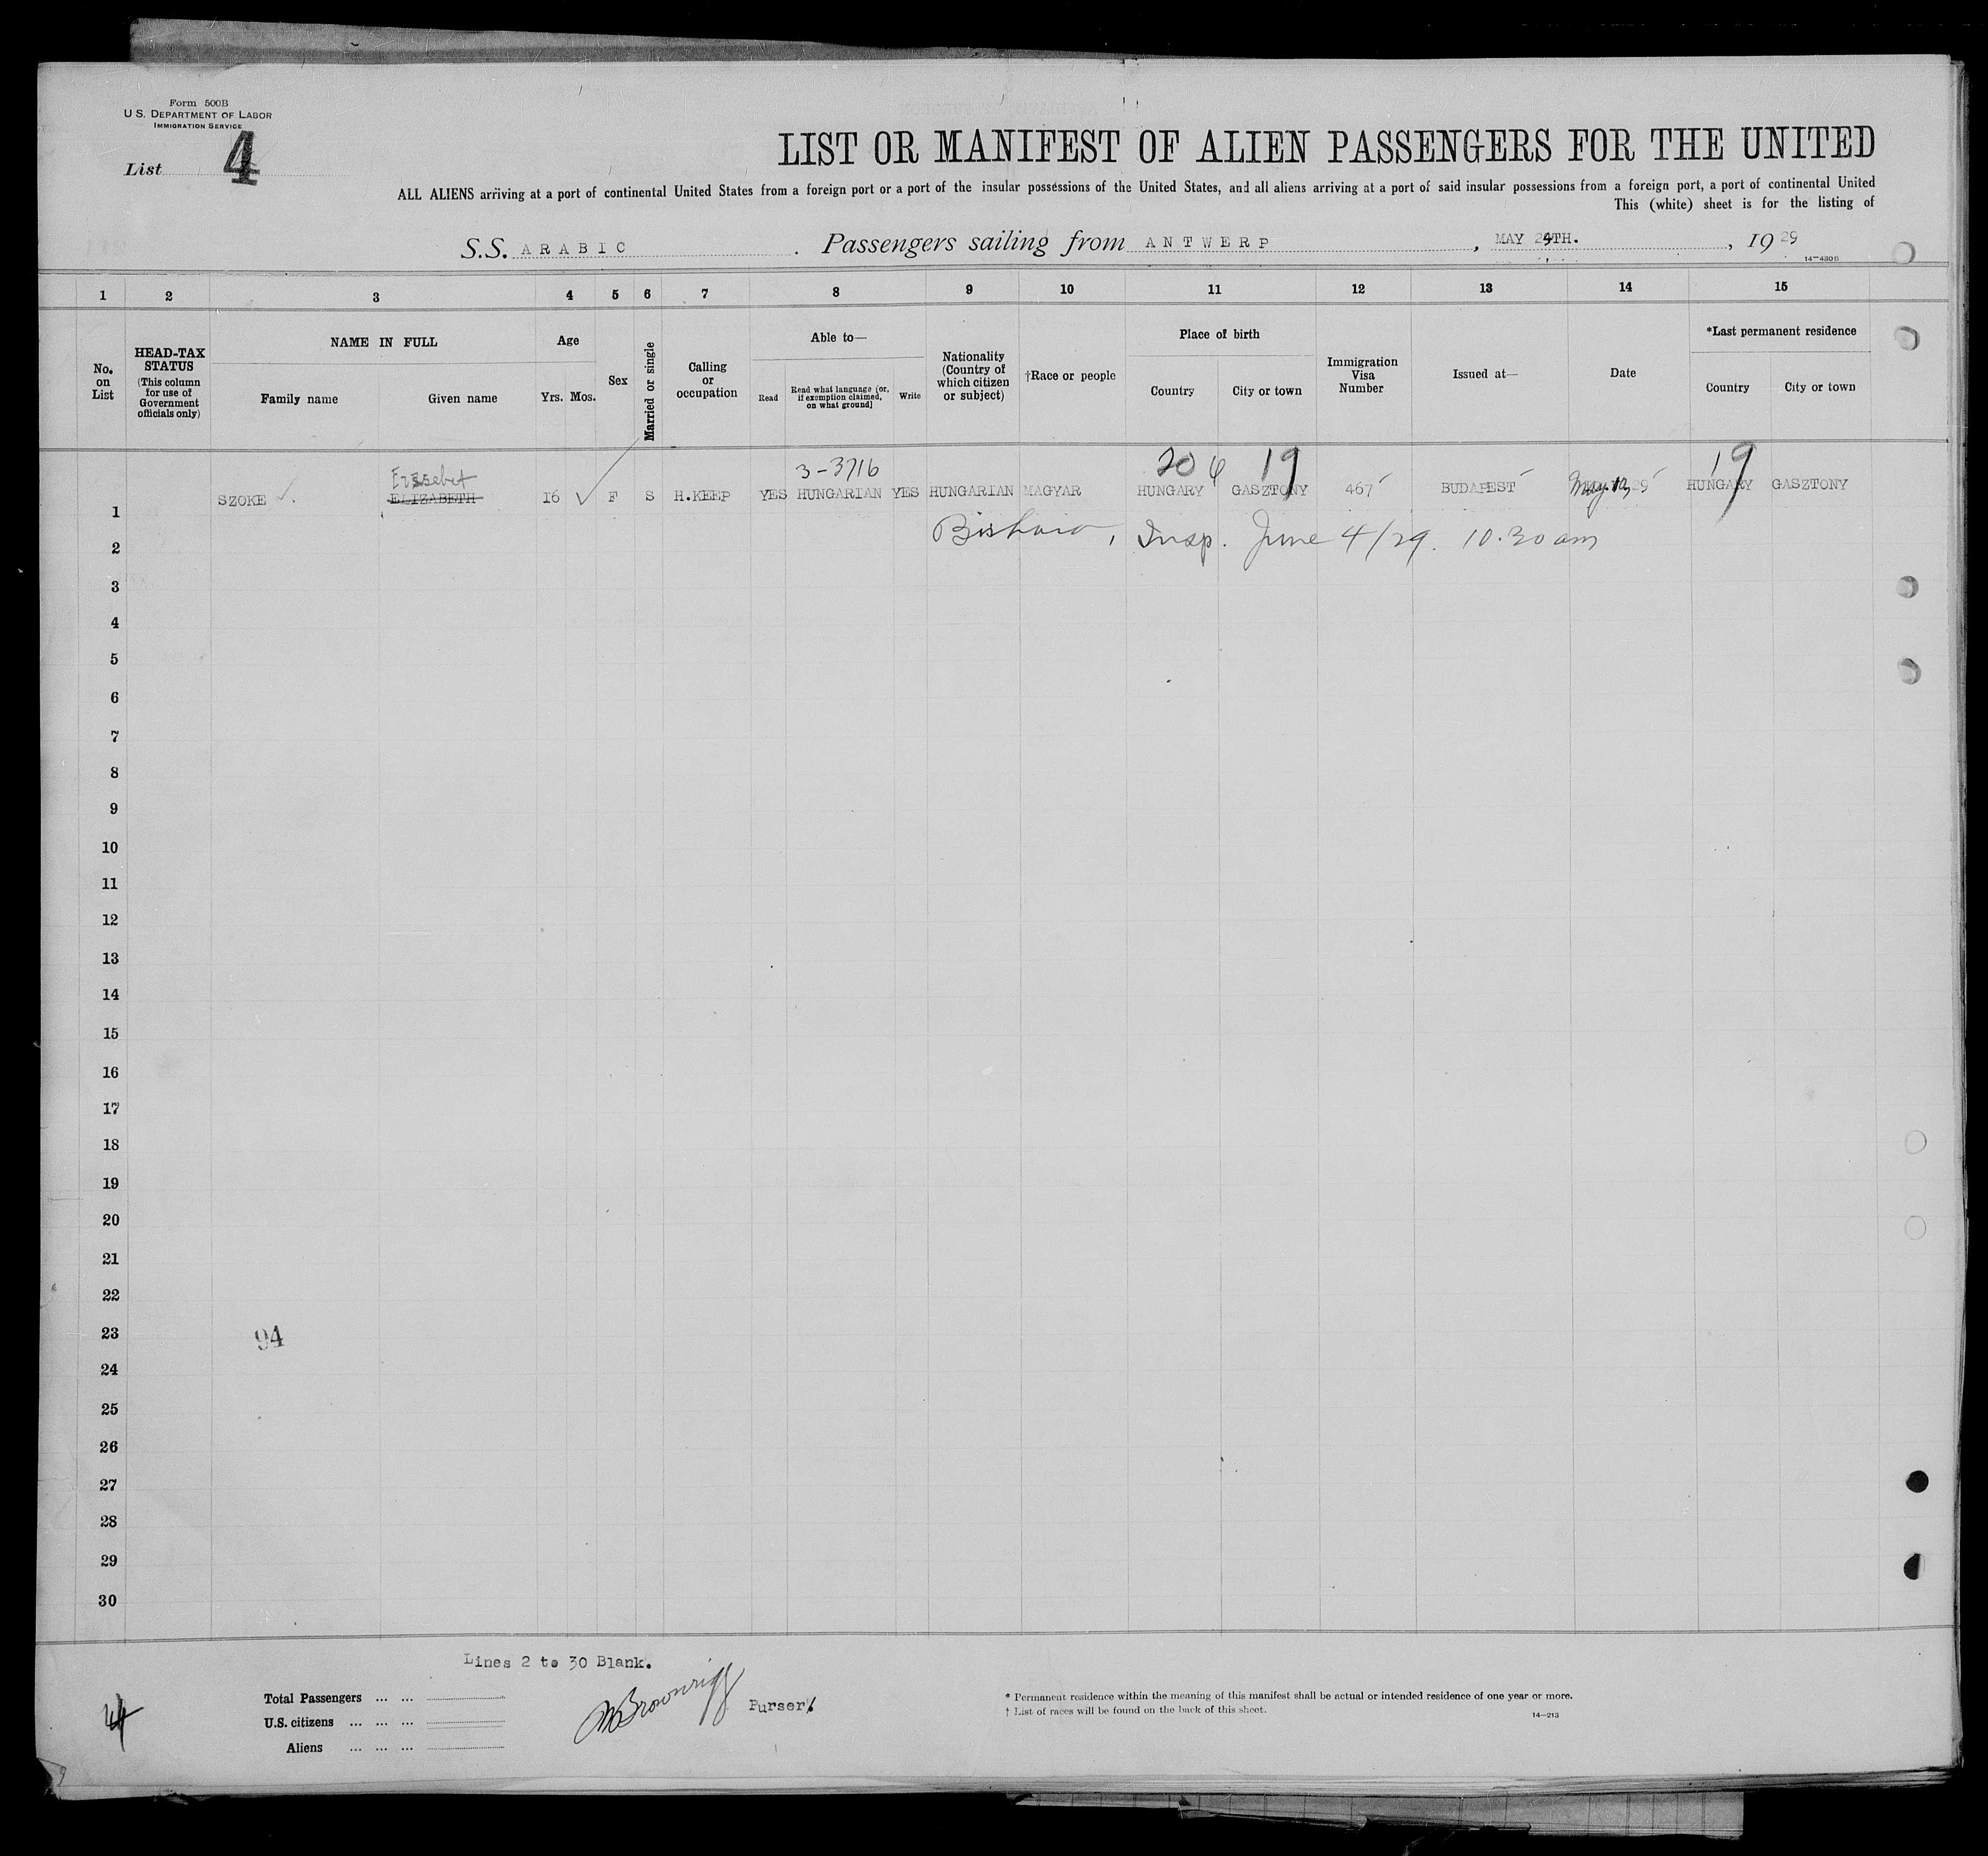 Form 500B
U S. DEPARTMENT OF LABOR
IMMIGRATION SERVICE
List 4
LIST OR MANIFEST OF ALIEN PASSENGERS FOR THE UNITED
ALL ALIENS arriving at a port of continental United States from a foreign port or a port of the insular possessions of the United States, and all aliens arriving at a port of said insular possessions from a foreign port, a port of continental United
This (white) sheet is for the listing of
S.S. ARABIC . Passengers sailing from ANTWERP , MAY 24TH. , 19 29
14-430B
1 2 3 4 5 6 7 8 9 10 11 12 13 14 15
No. on List
HEAD-TAX STATUS (This column for use of Government officials only)
NAME IN FULL
Family name Given name
Age
Yrs. Mos.
Sex
Married or single
Calling or occupation
Able to—
Read Read what language [or, if exemption claimed, on what ground] Write
Nationality (Country of which citizen or subject)
†Race or people
Place of birth
Country City or town
Immigration Visa Number
Issued at—
Date
*Last permanent residence
Country City or town
Erzsebet 3-3716 20 19 19
1 SZOKE ELIZABETH 16 F S H.KEEP YES HUNGARIAN YES HUNGARIAN MAGYAR HUNGARY GASZTONY 467 BUDAPEST May 29 HUNGARY GASZTONY
2 Insp. June 4/29. 10.30 am
3
4
5
6
7
8
9
10
11
12
13
14
15
16
17
18
19
20
21
22
23 94
24
25
26
27
28
29
30
Lines 2 to 30 Blank.
Total Passengers ... ...
U.S. citizens ... ... ...
Aliens ... ... ...
Brownrigg Purser
* Permanent residence within the meaning of this manifest shall be actual or intended residence of one year or more.
† List of races will be found on the back of this sheet.
14-213